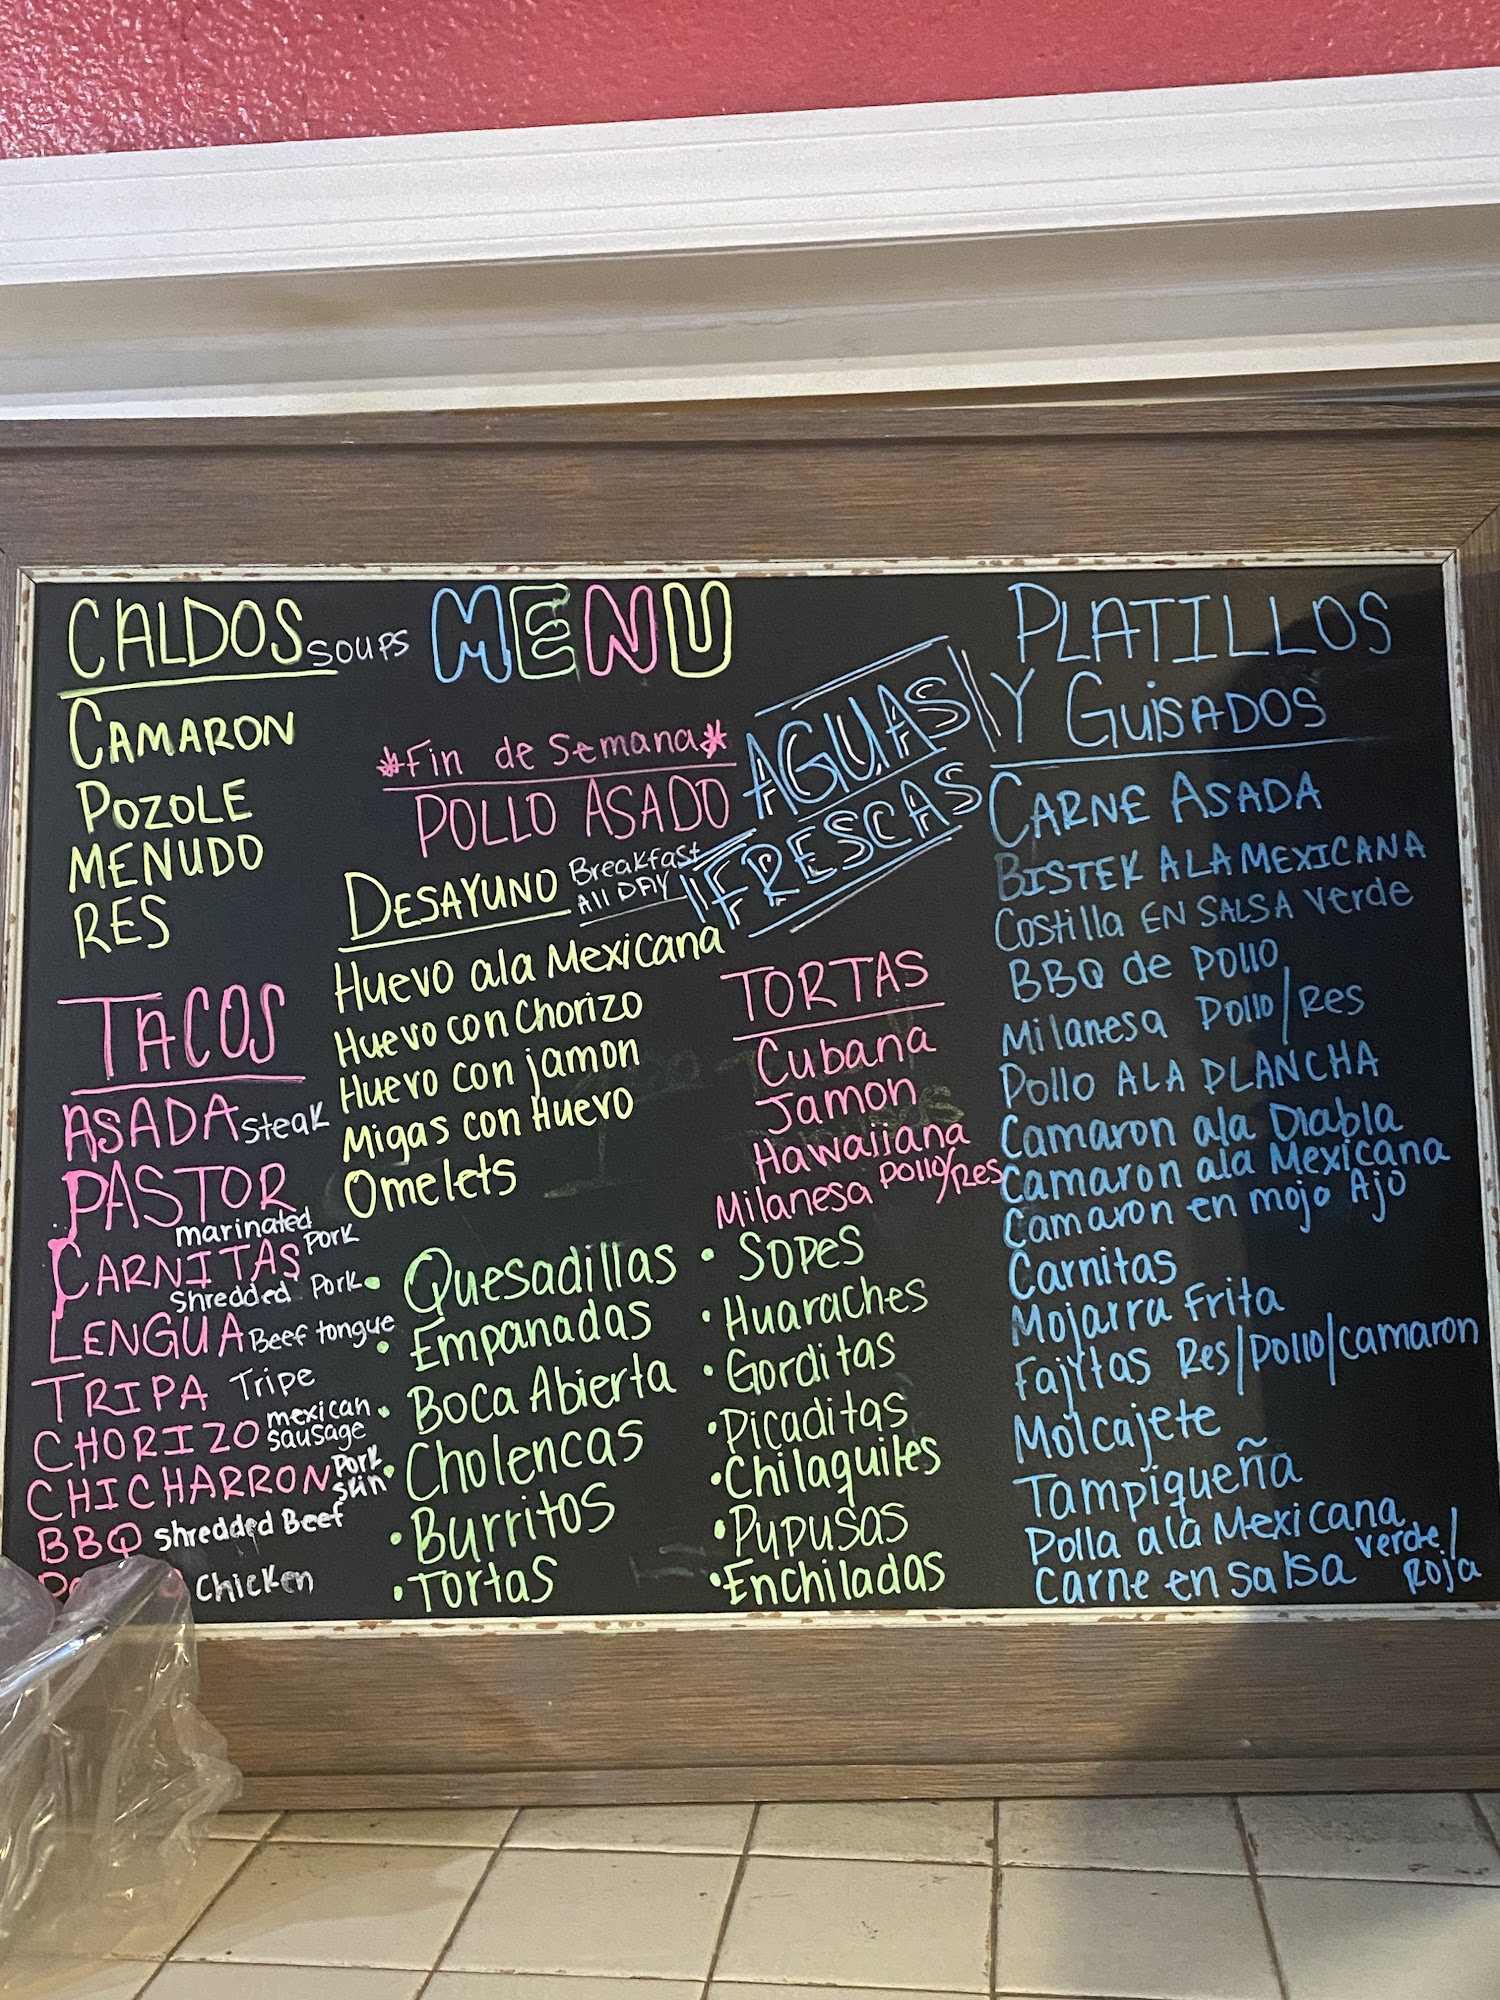 CALDOS SOUPS
CAMARON
POZOLE
MENUDO
RES
TACOS
ASADA Steak
PASTOR
marinated Pork
CARNITAS
Shredded Pork
LENGUA Beef tongue
TRIPA Tripe
CHORIZO mexican sausage
CHICHARRON Pork skin
BBQ Shredded Beef
Chicken
MENU
*Fin de Semana*
POLLO ASADO
DESAYUNO Breakfast All DAY
Huevo ala Mexicana
Huevo con Chorizo
Huevo con jamon
Migas con Huevo
Omelets
• Quesadillas
• Empanadas
• Boca Abierta
• Cholencas
• Burritos
• Tortas
AGUAS
FRESCAS
TORTAS
Cubana
Jamon
Hawaiiana
Milanesa Pollo/Res
• SOPES
• Huaraches
• Gorditas
• Picaditas
• Chilaquiles
• Pupusas
• Enchiladas
PLATILLOS
Y GUiSADOS
CARNE ASADA
BISTEK ALA MEXICANA
Costilla EN SALSA Verde
BBQ de pollo
Milanesa Pollo/Res
Pollo ALA PLANCHA
Camaron ala Diabla
Camaron ala Mexicana
Camaron en mojo Ajo
Carnitas
Mojarra Frita
Fajytas Res/Pollo/camaron
Molcajete
Tampiqueña
Polla ala Mexicana
Carne en salsa verde/Roja